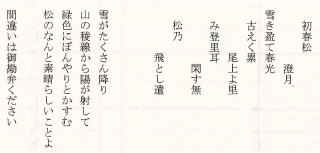 初春松
澄月
雪き盈て春光
古えく累
尾上よ里
み登里耳
閑す無
松乃
飛とし遣
雪がたくさん降り
山の稜線から陽が射して
緑色にぼんやりとかすむ
松のなんと素晴らしいことよ
間違いは御勘弁ください